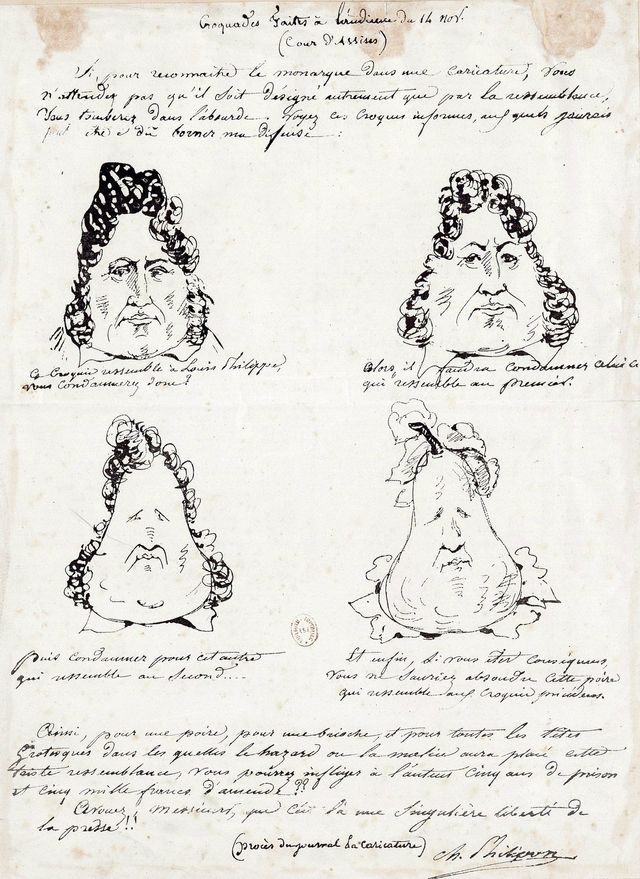 Croquades faites à l'audience du 14 Nov.
(Cour d'Assises)
Si, pour reconnaitre le monarque dans une caricature, vous
n'attendez pas qu'il soit désigné autrement que par la ressemblance,
vous tomberez dans l'absurde. Voyez ces croquis informes, auxquels j'aurais
peut être dû borner ma défense :
Ce croquis ressemble à Louis Philippe,
vous condamnerez donc?
Alors il faudra condamner celui ci
qui ressemble au premier.
Puis condamner pour cet autre
qui ressemble au second....
Et enfin, si vous êtes conséquens,
vous ne sauriez absoudre cette poire
qui ressemble aux croquis précédens.
Ainsi, pour une poire, pour une brioche, et pour toutes les têtes
grotesques dans les quelles le hazard ou la malice aura placé cette
triste ressemblance, vous pourrez infliger à l'auteur cinq ans de prison
et cinq mille francs d'amende??
Avouez, Messieurs, que c'est là une singulière liberté de
la presse!!
(procès du journal La Caricature)
Ch. Philipon